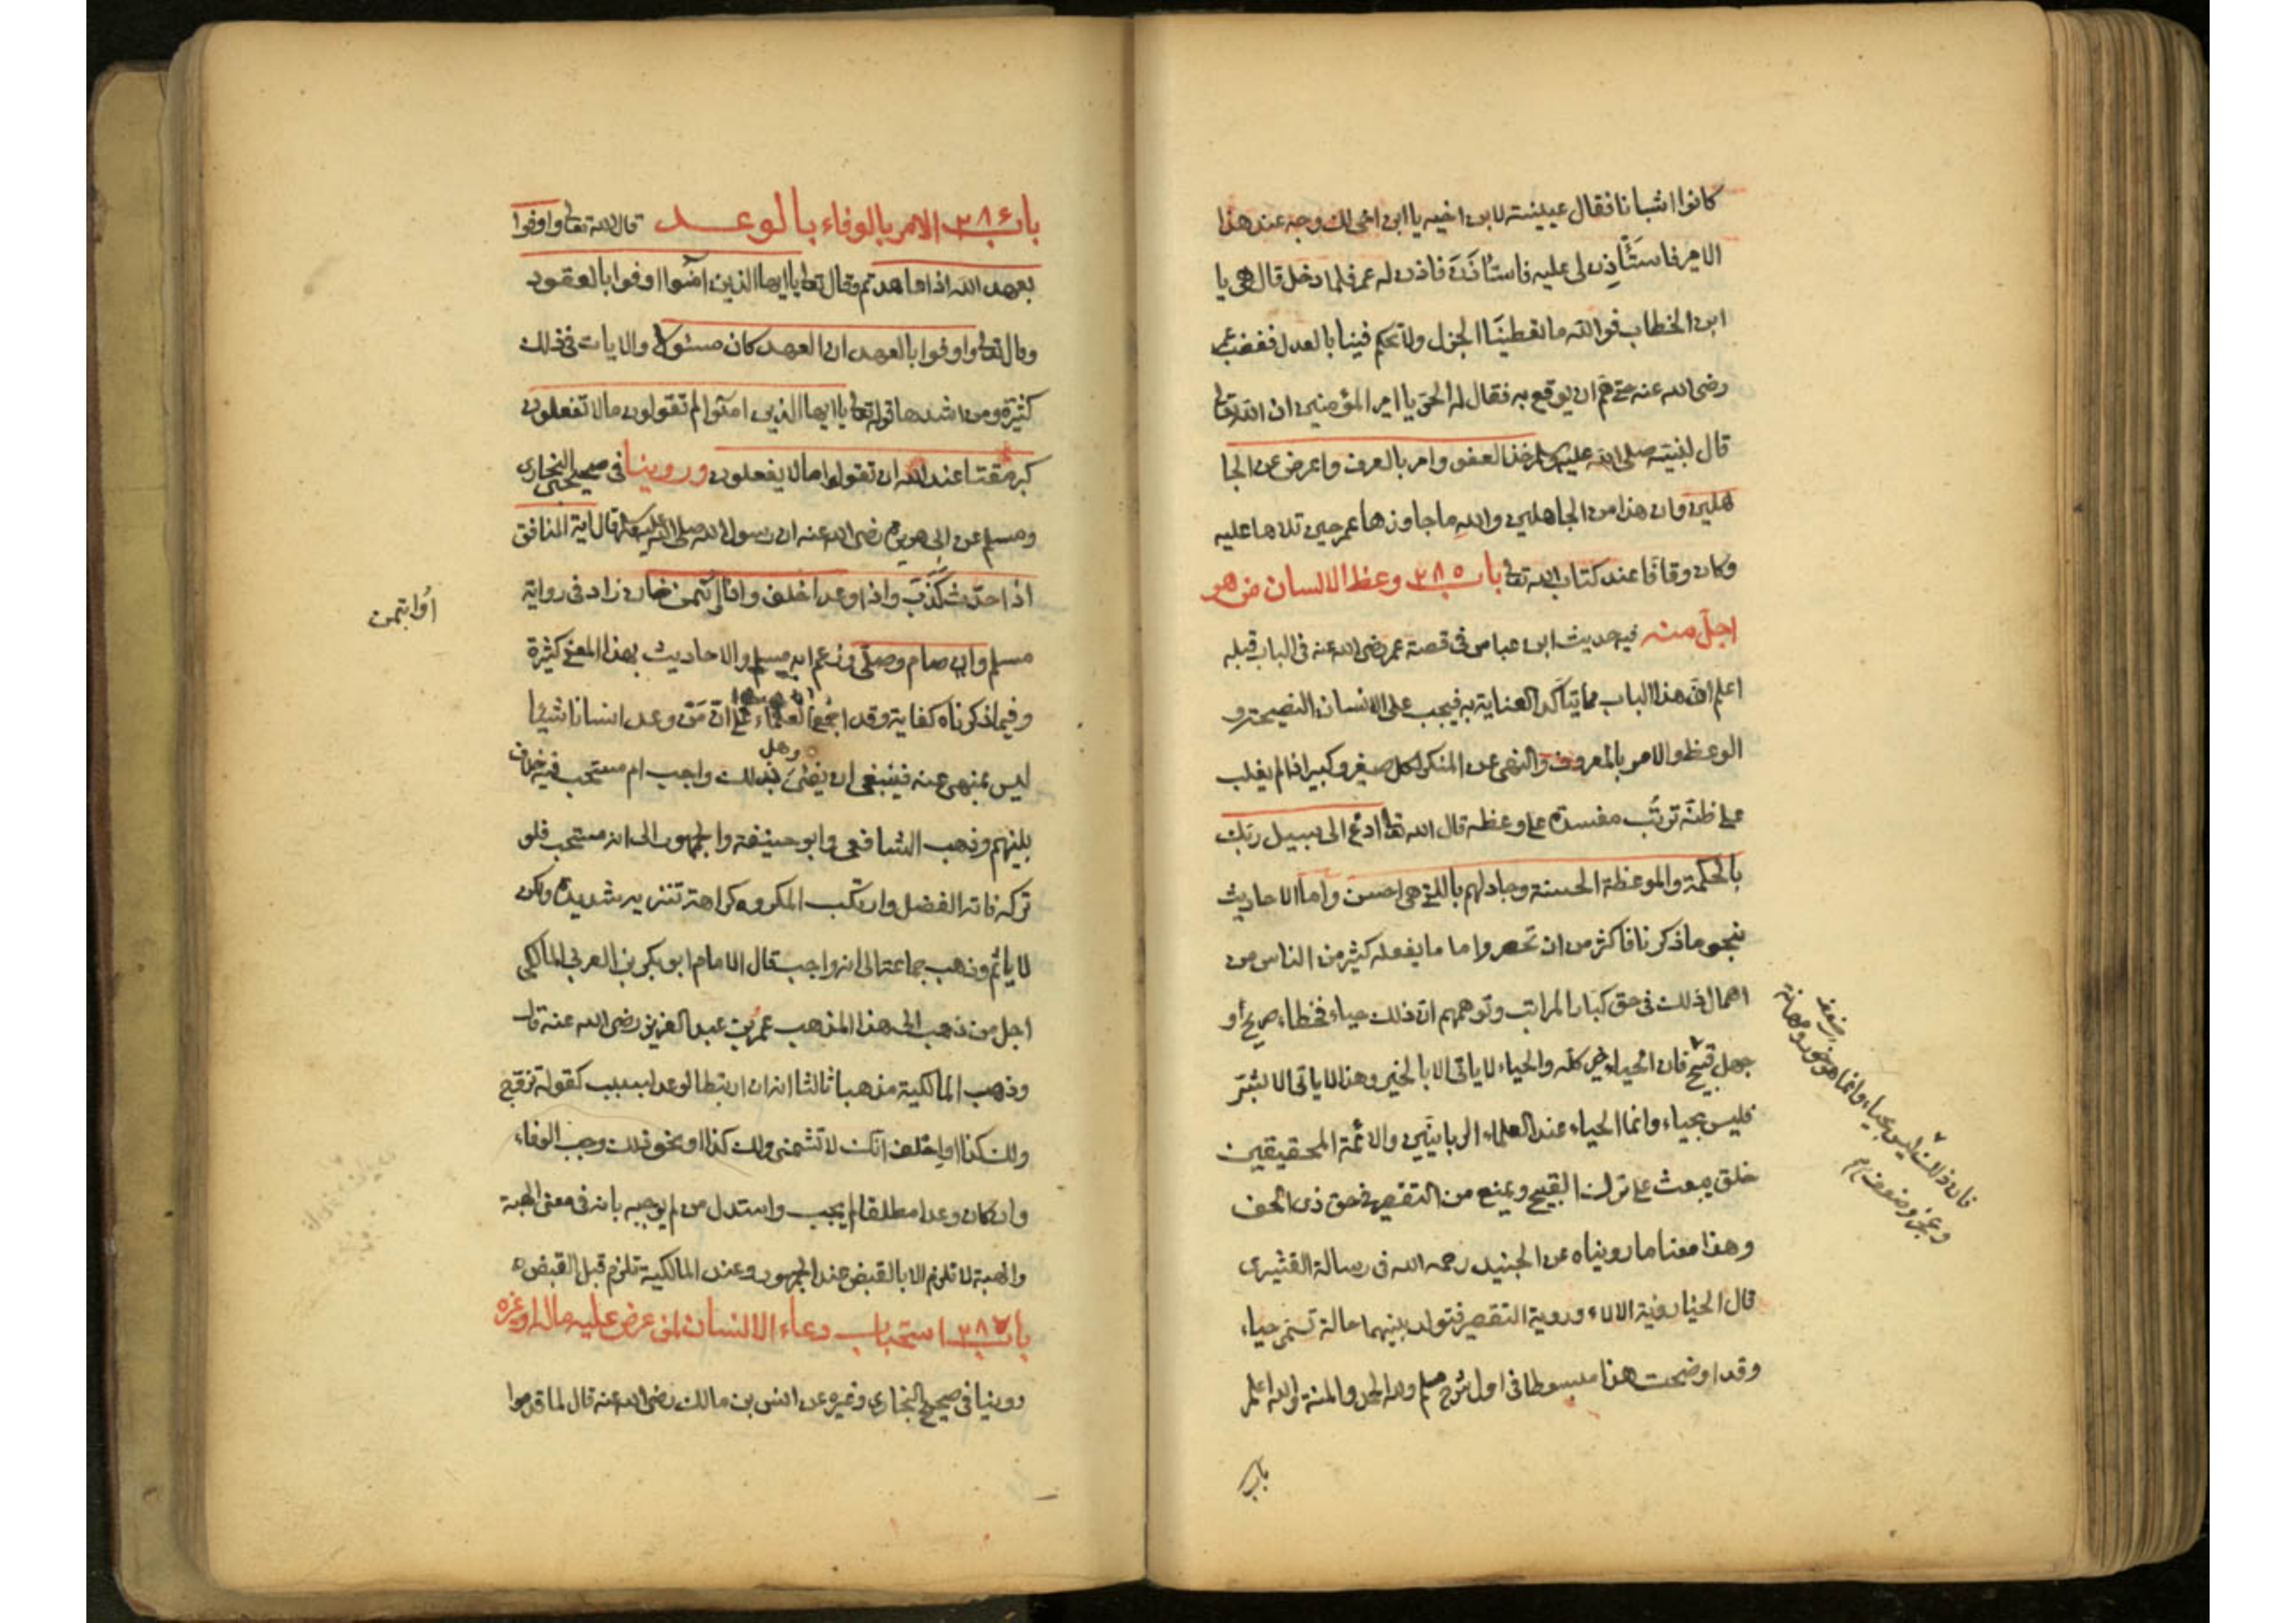 كانوا اشبانا فقال عيينة لابن اخيه يا ابن اخي لك وجه عند هذا
الامير فاستأذن لى عليه فاستأذن فاذن له عمر فلما دخل قال هى يا
ابن الخطاب فوالله ما تعطينا الجزل ولا تحكم فينا بالعدل فغضب عمر
رضى الله عنه حتى هم ان يوقع به فقال له الحر يا امير المؤمنين ان الله تعالى
قال لنبيه صلى الله عليه وسلم خذ العفو وامر بالعرف واعرض عن الجا
هلين وان هذا من الجاهلين والله ما جاوزها عمر حين تلاها عليه
وكان وقافا عند كتاب الله تعالى باب ٢٨٥ وعظ الانسان من هو
اجلّ منه فيه حديث ابن عباس فى قصة عمر رضى الله عنه فى الباب قبله
اعلم انّ هذا الباب مما يتأكد العناية به فيجب على الانسان النصيحة و
الوعظ والامر بالمعروف والنهى عن المنكر لكل صغير وكبير اذا لم يغلب
على ظنّه ترتّب مفسدة على وعظه قال الله تعالى ادع الى سبيل ربك
بالحكمة والموعظة الحسنة وجادلهم بالتي هى احسن واما الاحاديث
بنحو ما ذكرنا فاكثر من ان تحصر واما ما يفعله كثير من الناس من
اهمال ذلك فى حق كبار المراتب وتوهمهم ان ذلك حياء فخطاء صريح او
جهل قبيح فان الحياء خير كله والحياء لا ياتى الا بالخير وهذا لا ياتى الا بشرّ
فليس بحياء وانما الحياء عند العلماء الربانيين والائمة المحققين
خلق يبعث على ترك القبيح ويمنع من التقصير فى حق ذى الحق
وهذا معنا ما رويناه عن الجنيد رحمه الله فى رسالة القشيرى
قال الحيا روية الالاء وروية التقصير فتولد بينهما حالة تسمى حياء
وقد اوضحت هذا مبسوطا فى اول شرح مسلم ولله الحمد والمنة والله اعلم
باب
فان ذلك ليس بحياء وانما هو خور ومهانة
ضعف
وعجز وضعف
باب ٢٨٦ الامر بالوفاء بالوعد قال الله تعالى واوفوا
بعهد الله اذا عاهدتم وقال تعالى يا ايها الذين امنوا اوفوا بالعقود
وقال تعالى واوفوا بالعهد ان العهد كان مسئولا والايات فى ذلك
كثيرة ومن اشدها قوله تعالى يا ايها الذين امنوا لم تقولون ما لا تفعلون
كبر مقتا عند الله ان تقولوا مالا يفعلون وروينا فى صحيحى البخارى
ومسلم عن ابى هريرة رضى الله عنه ان رسول الله صلى الله عليه وسلم قال اية المنافق
اذا حدّث كذب واذا وعد اخلف واذا ائتمن خان زاد فى رواية
اؤتمن
مسلم وان صام وصلّى وزعم انه مسلم والاحاديث بهذا المعنى كثيرة
وفيما ذكرناه كفاية وقد اجمع العلماء على انّ مَن وعد انسانا شيئا
ليس بمنهى عنه فينبغى ان يفى بوعده وهل ذلك واجب ام مستحب فيه خلاف
بينهم وذهب الشافعى وابو حنيفة والجمهور الى انه مستحب فلو
تركه فاته الفضل وارتكب المكروه كراهة تنزيه شديدة ولكن
لا ياثم وذهب جماعة الى انه واجب قال الامام ابو بكر بن العربى المالكى
اجل من ذهب الى هذا المذهب عمر بن عبد العزيز رضى الله عنه قال
وذهب المالكية مذهبا ثالثا انه ان ارتبط الوعد بسبب كقوله تزوج
ولك كذا او احلف انك لا تشتمنى ولك كذا او نحو ذلك وجب الوفاء
وان كان وعدا مطلقا لم يجب واستدل من لم يوجبه بانه فى معنى الهبة
والهبة لا تلزم الا بالقبض عند الجمهور وعند المالكية تلزم قبل القبض
باب ٢٨٧ استحباب دعاء الانسان لمن عرض عليه ماله او غيره
روينا فى صحيح البخارى وغيره عن انس بن مالك رضى الله عنه قال لما قدموا